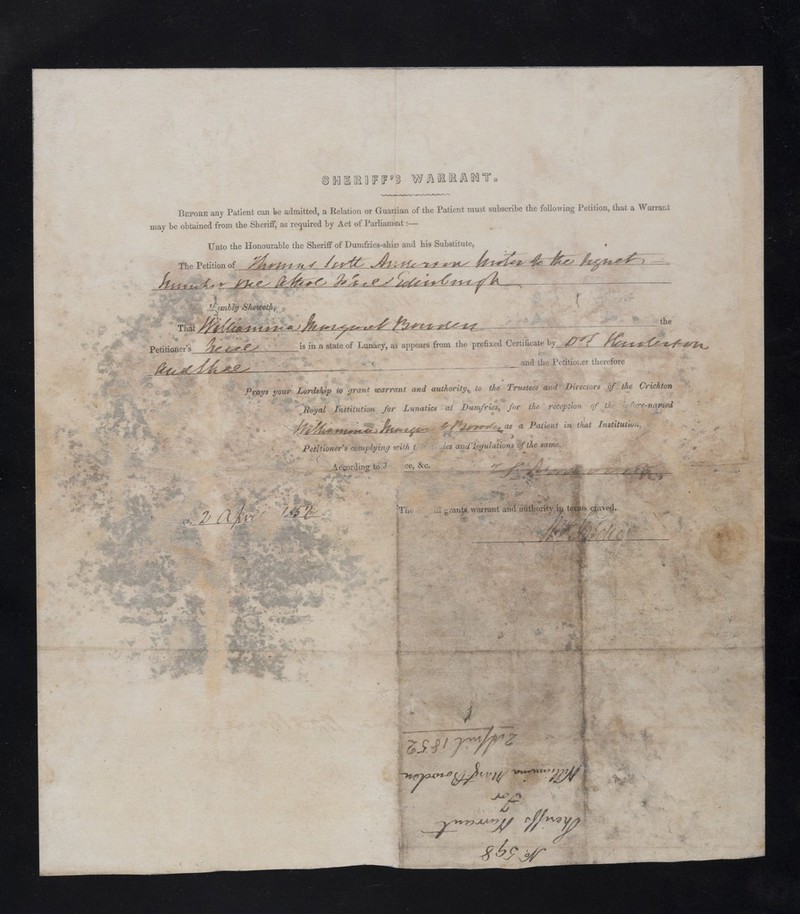 SHERIFF'S WARRANT.
BEFORE any Patient can be admitted, a Relation or Guardian of the Patient must subscribe the following Petition, that a Warrant
may be obtained from the Sheriff, as required by Act of Parliament :—
Unto the Honourable the Sheriff of Dumfries-shire and his Substitute,
The Petition of Thomas Scott Anderson Writer to the Signet
Number one Athole Edinburgh
Sheweth,
That Williamina Margaret Bowden the
Petitioner's Neice is in a state of Lunacy, as appears from the prefixed Certificate by Drs Henderson
and and the Petitioner therefore
Prays your Lordship to grant warrant and authority, to the Trustees and Directors of the Crichton
Royal Institution for Lunatics at Dumfries, for the reception of the -named
Williamina as a Patient in that Institution,
Petitioner's complying with and regulations of the same.
According to &c.
2 April 1852
The grants warrant and authority in terms craved.
2 April 1852
Williamina Margt Bowden
For
Sheriffs Warrant
No. 598